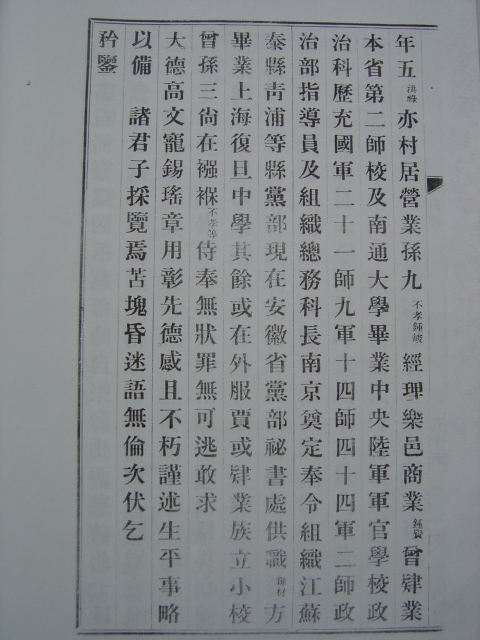 年五洪維亦村居營業孫九不孝鍾峻經理樂邑商業鍾賢曾肄業
本省第二師校及南通大學畢業中央陸軍軍官學校政
治科歷充國軍二十一師九軍十四師四十四軍二師政
治部指導員及組織總務科長南京奠定奉令組織江蘇
泰縣靑浦等縣黨部現在安徽省黨部祕書處供職鍾材方
畢業上海復旦中學其餘或在外服賈或肄業族立小校
曾孫三尙在襁褓不孝等侍奉無狀罪無可逃敢求
大德高文寵錫瑤章用彰先德感且不朽謹述生平事略
以備諸君子採覽焉苦塊昏迷語無倫次伏乞
矜鑒